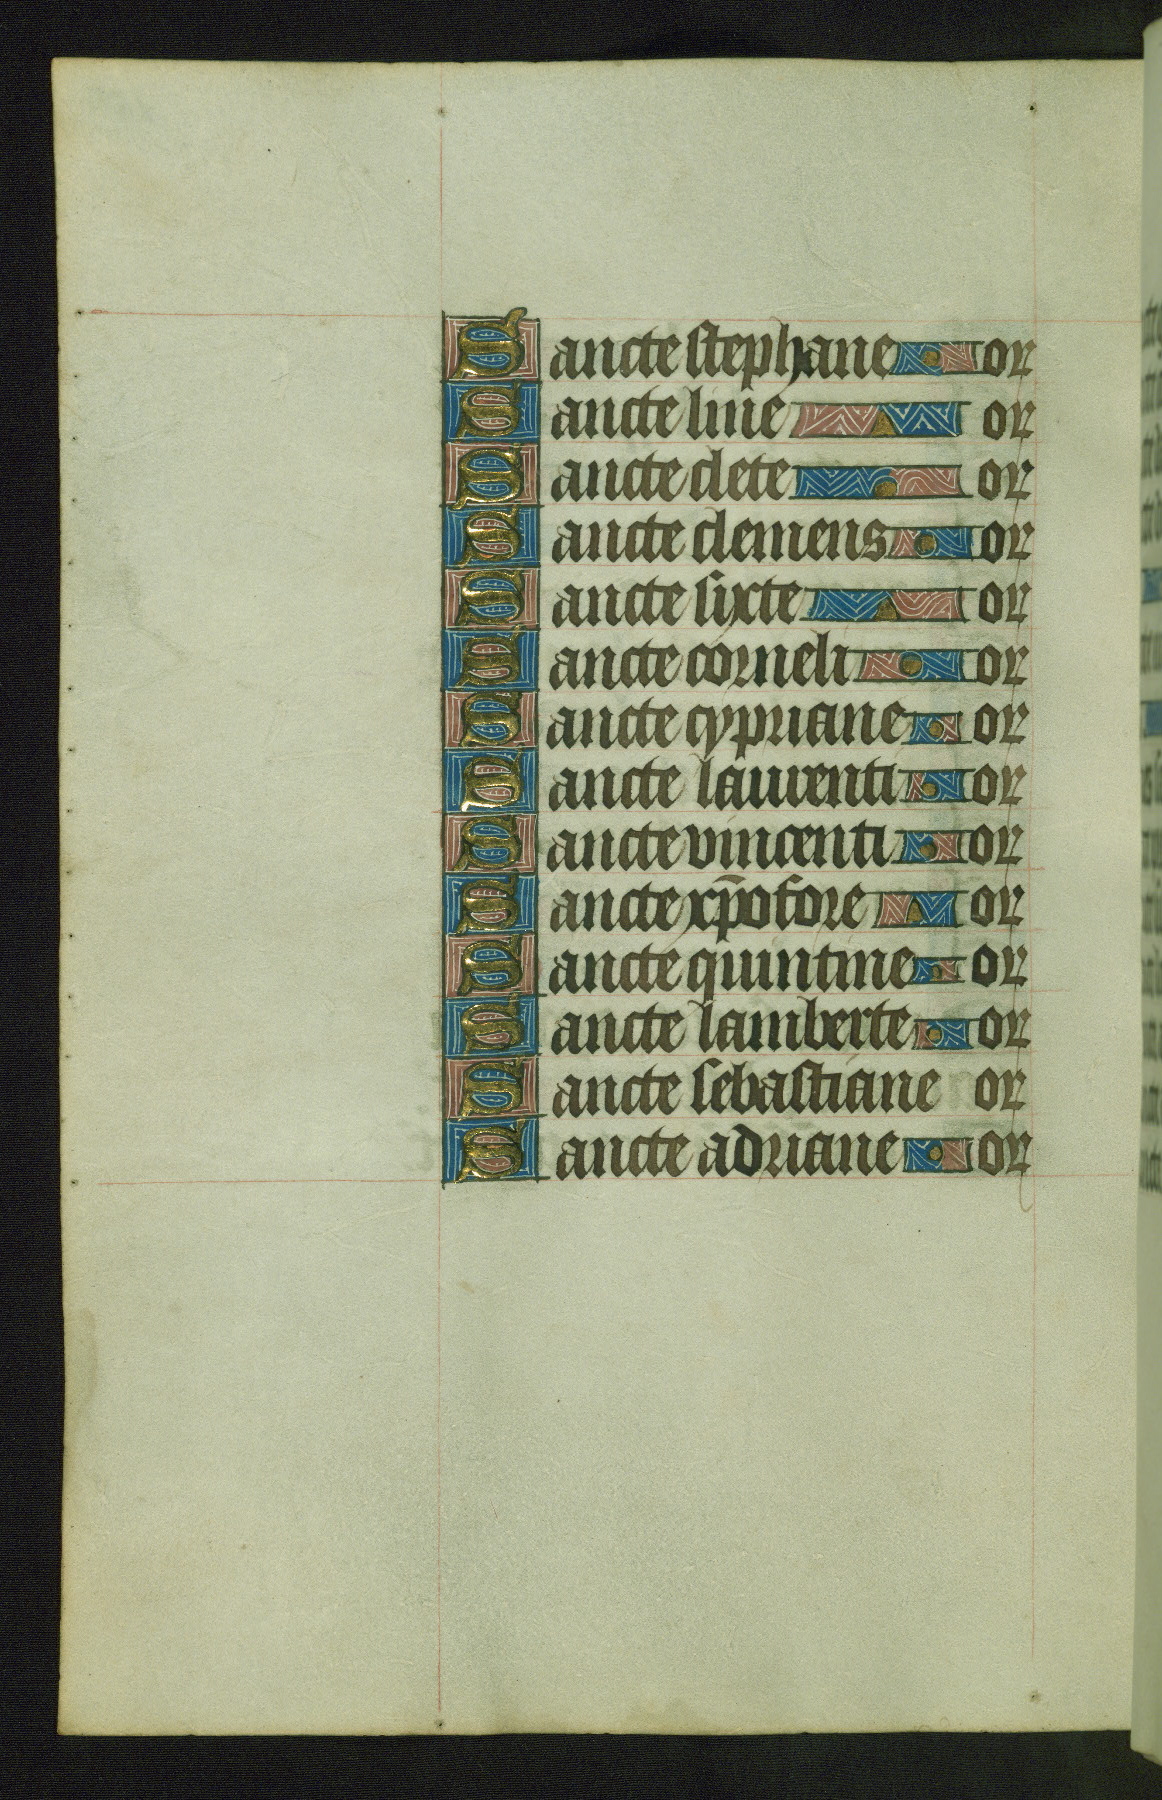 Sancte stephane or
Sancte line or
Sancte clete or
Sancte clemens or
Sancte sixte or
Sancte corneli or
Sancte cypriane or
Sancte laurenti or
Sancte vincenti or
Sancte xp̄ofore or
Sancte quintine or
Sancte lamberte or
Sancte sebastiane or
Sancte adriane or